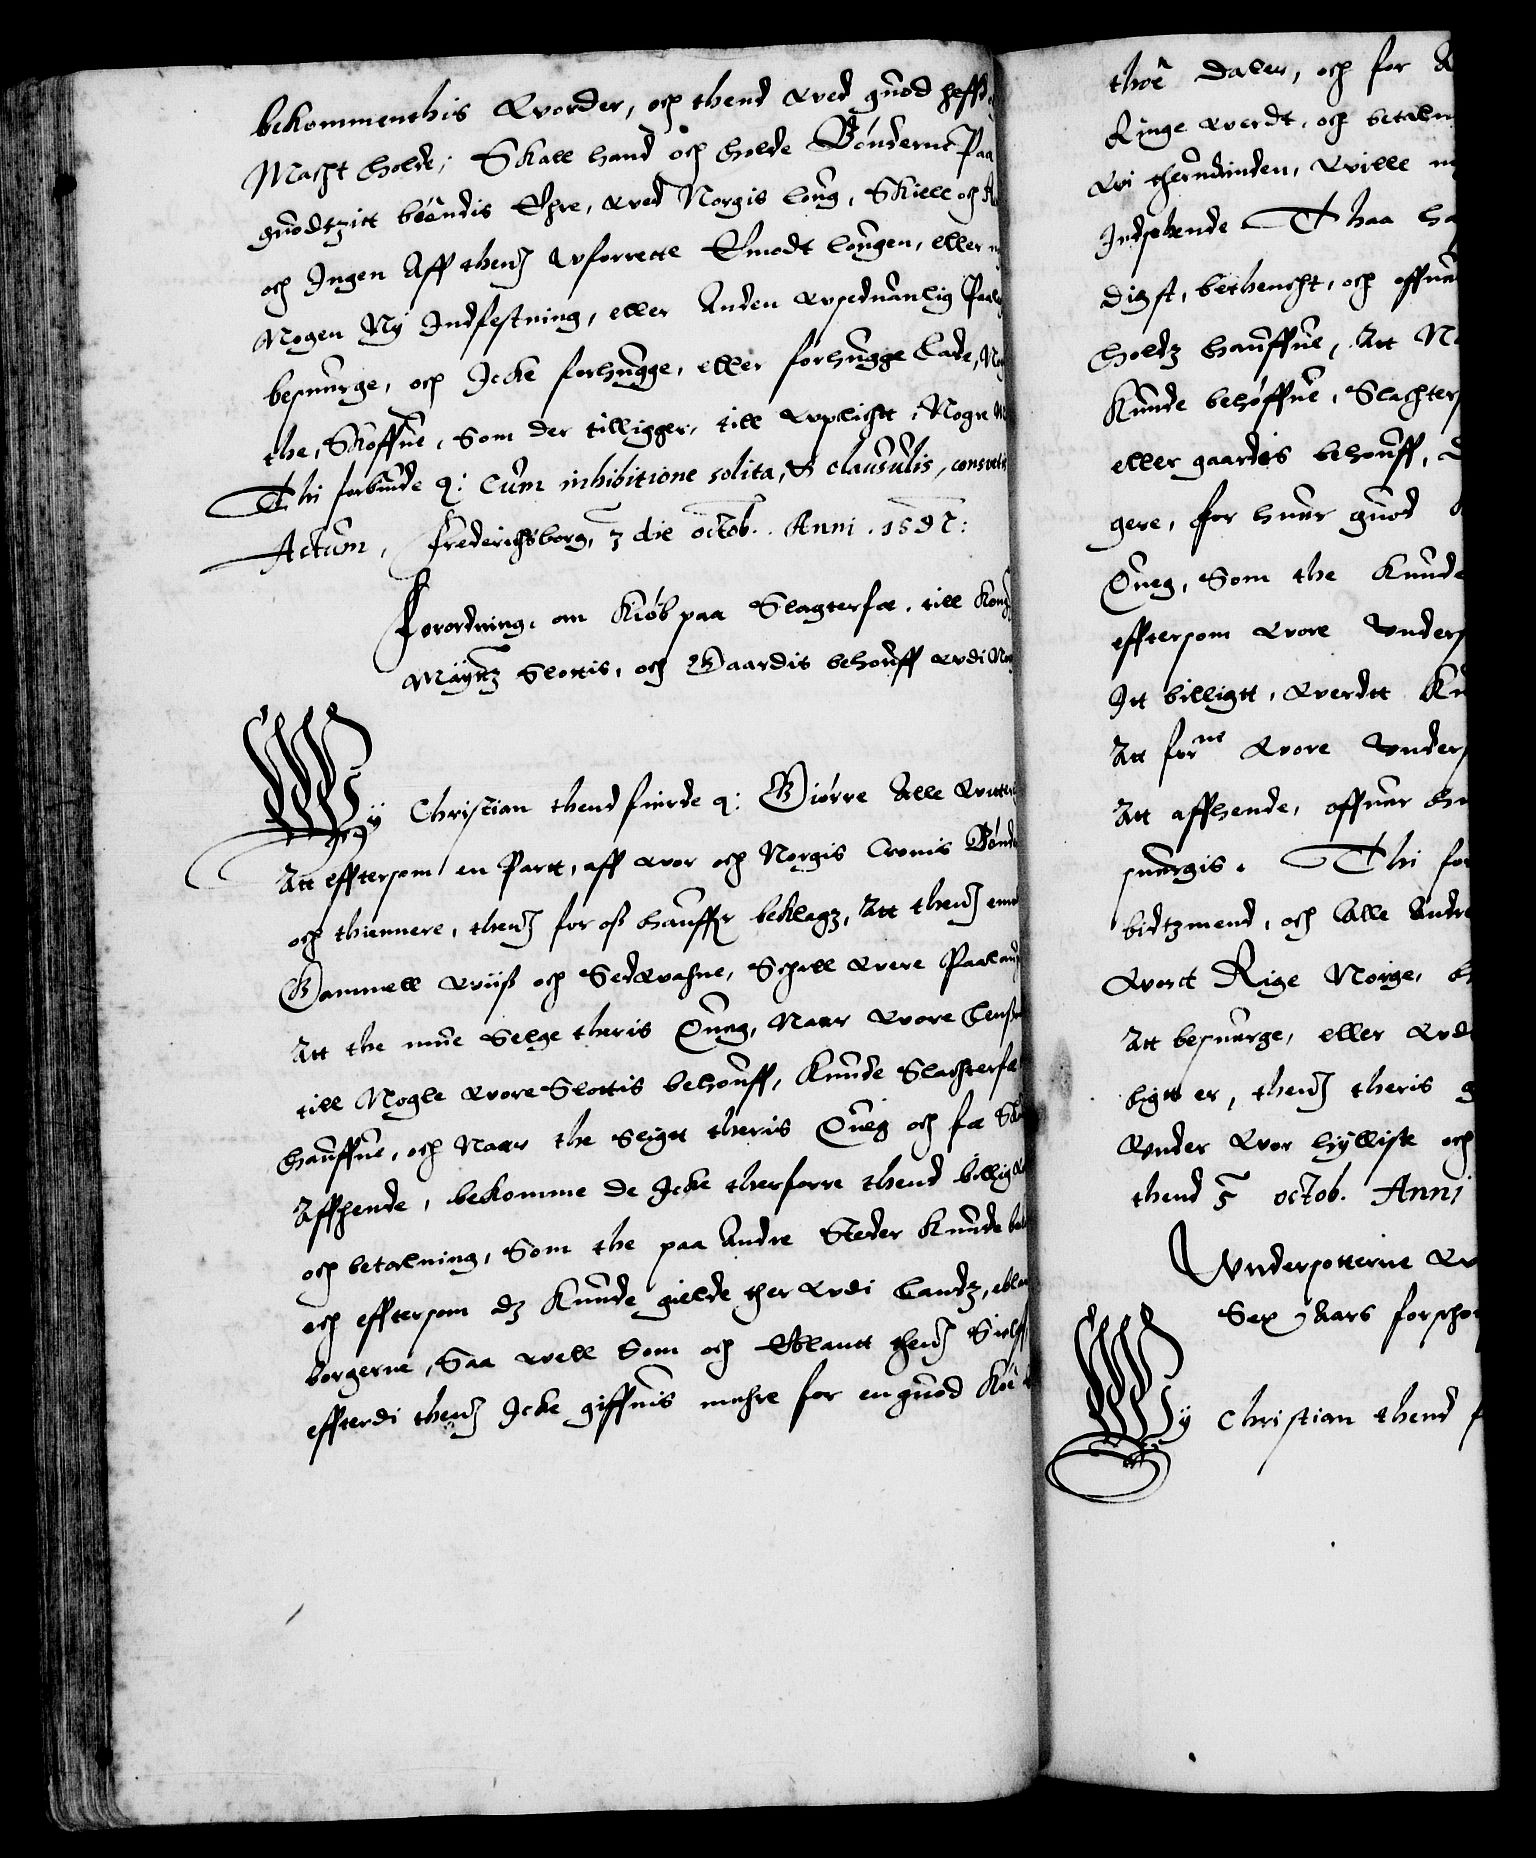 bekommenthis worder, och thend wed guod heffd
Macht holde; Skall hand och holde Bønderne Paa
guodtzitt boendis Ehre, wed Norgis loug, Skiell och
och Ingen Aff thenỽ wforrette Emodt lougen, eller
Nogen Ny Indfestning, eller Anden wseduanlig
besuerge, och Icke forhugge, eller forhugge lade,
the, Skoffue, Som der tilligger, till wplicht, Nogre
Thi forbiude q: Cum inhibitione solita, & clausulis,
Actum, Frederichsborg, 3 die octob. Anni. 1597:
Forordning, om Kiøb paa Slagterfæ, till Kong
Maÿttz Slottis, och Gaardis behouff wdi
Wy Christian thend fierde q: Giørre Alle witterligt
Att efftersom en Partt, aff wor och Norgis Cronis Bønder
och thiennere, thenỽ for oß hauffr beklagz, Att thenỽ emod
Gammell wiiß och Sedwahne, Schall were Paalaugt
Att the mue Selge theris Queg, Naar wore Lenß
till Nogle wore Slottis behouff, Kunde Slachterfæ
hauffue, och Naar the Seiget theris Queg och fæ
Affhende, bekomme de Icke therforre thend billig
och betalning, Som the paa Andre Steder Kunde
och efftersom dz Kunde gielde ther wdi Landz,
borgerne, Saa well Som och Eblantt thenỽ Sielff
effterdi thenỽ Icke giffuis mehre for en guod Koe
thoe Daler, och for
Ringe werdt, och betaln
wi therudinden, wille
Indsehende Thaa
digst, bethencht, och offuer
holdz hauffue, Att
Kunde behøffue, Slachter
eller gaardis behouff,
gere, for huer guod
Queg, Som the Kunde
efftersom wore Unders
Itt billigtt, werdtt
Att forne wore Unders
Att affhende, offuer
suergis. Thi for
bidtzmend, och Alle Andre
wortt Rige Norge,
Att besuerge, eller wdi
ligtt er, thenỽ theris
Under wor hyllist och
thend 5 octob. Anni
Undersotterne
Sex Aars forscho
Wy Christian thend